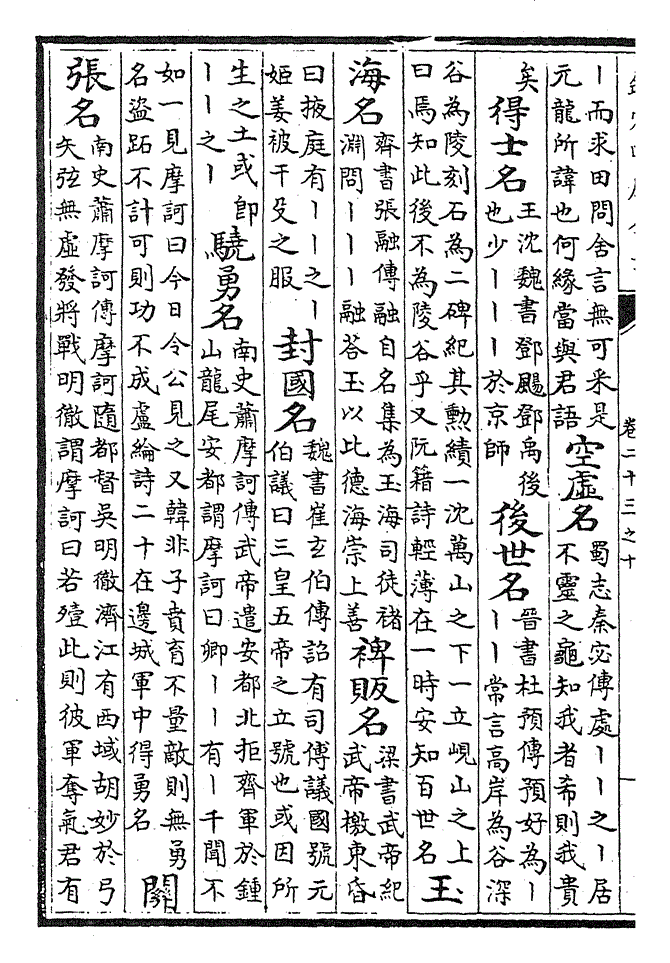 卷二十三之十
丨而求田問舍言無可采是
元龍所諱也何緣當與君語
空虛名
蜀志秦宓傳處丨丨之丨居
不靈之龜知我者希則我貴
矣
得士名
王沈魏書鄧颺鄧禹後
也少丨丨丨於京師
後世名
晉書杜預傳預好為丨
丨丨常言高岸為谷深
谷為陵刻石為二碑紀其勲績一沈萬山之下一立峴山之上
曰焉知此後不為陵谷乎又阮籍詩輕薄在一時安知百世名
玉
海名
齊書張融傳融自名集為玉海司徒褚
淵問丨丨丨融荅玉以比德海崇上善
裨販名
梁書武帝紀
武帝檄東昏
曰掖庭有丨丨之丨
姬姜被干殳之服
封國名
魏書崔玄伯傳詔有司傳議國號元
伯議曰三皇五帝之立號也或因所
生之土或即
丨丨之丨
驍勇名
南史蕭摩訶傳武帝遣安都北拒齊軍於鍾
山龍尾安都謂摩訶曰卿丨丨有丨千聞不
如一見摩訶曰今日令公見之又韓非子賁育不量敵則無勇
名盜跖不計可則功不成盧綸詩二十在邊城軍中得勇名
關
張名
南史蕭摩訶傳摩訶隨都督吳明徹濟江有西域胡妙於弓
矢弦無虛發將戰明徹謂摩訶曰若殪此則彼軍奪氣君有